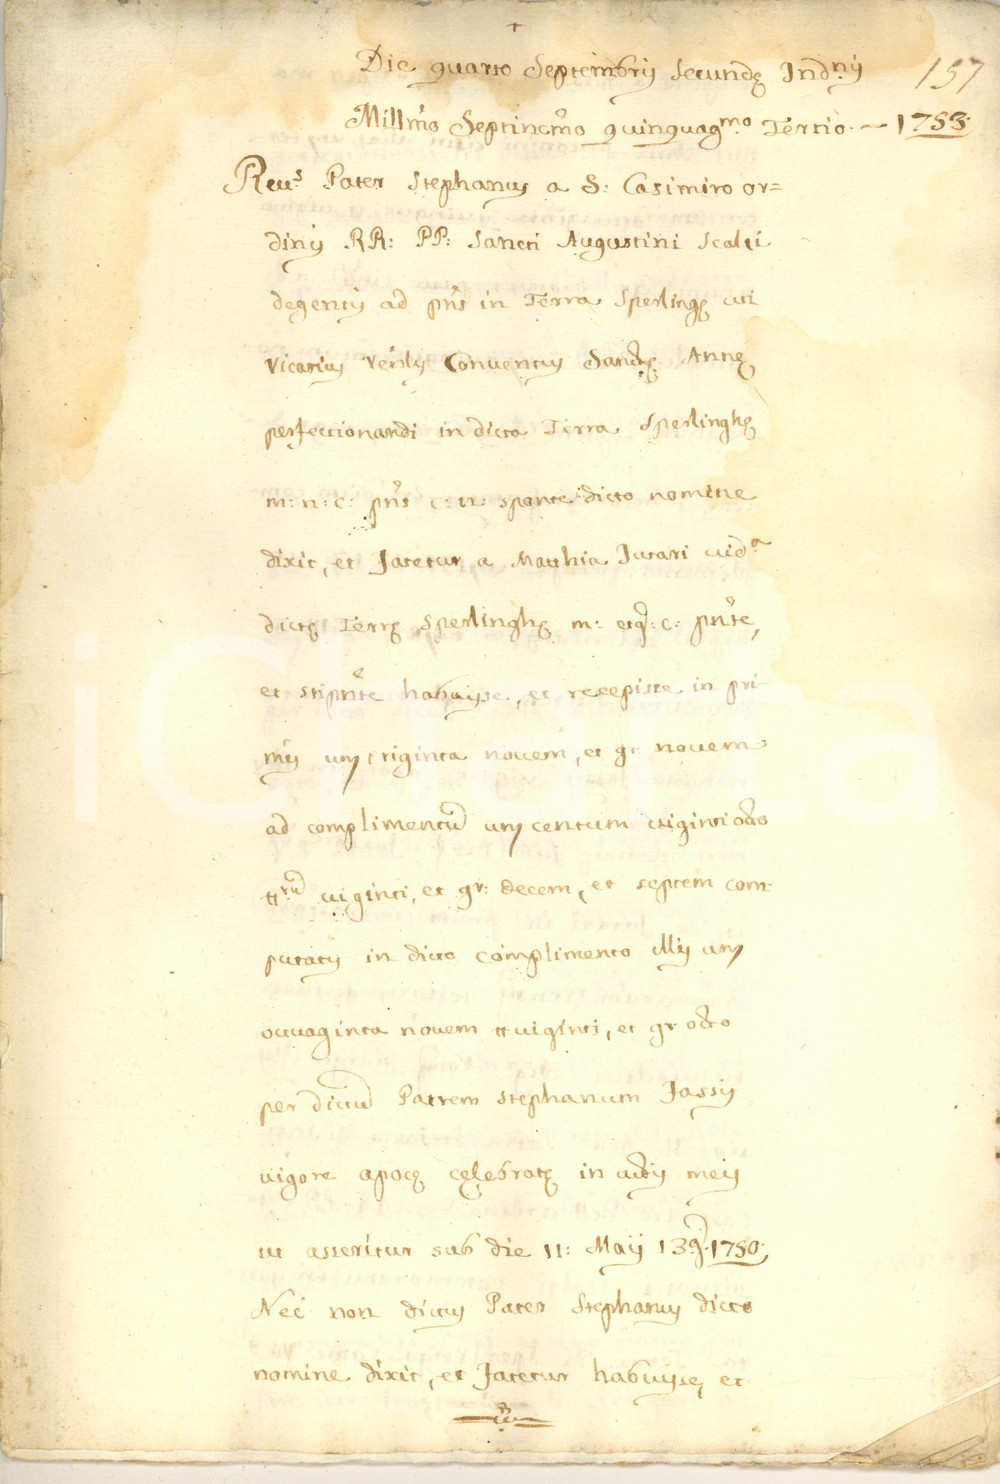 Die quarto Septembris secundę Indnis 157
Millmo Septincmo quinquagmo Tertio. — 1753.
Reus Pater Stephanus a S: Casimiro or=
dinis RR: PP: Sancti Augustini Scalzi
degentis ad pns in Terra Sperlingę uti
Vicarius Venlis Conventus Sanctę Annę
perfectionandi in dicta Terra Sperlinghę
m: n: c: pns c: n: sponte dicto nomine
dixit, et fatetur a Matthia Jutari vida
dictę Terrę Sperlinghę m: etq: c: pnte,
et stipnte habuisse, et recepisse in pri
mis un triginta novem, et gr novem
ad complimentu un centum viginti octo
ttru viginti, et gr: decem, et septem com=
putatis in dicto complimento illis un
octuaginta novem tt viginti, et gr octo
per dictu Patrem Stephanum Jassis
vigore apocę celebratę in actis meis
ut asseritur sub die 11: Maij 13 1750.
Nec non dictus Pater Stephanus dicto
nomine dixit, et fatetur habuisse, et